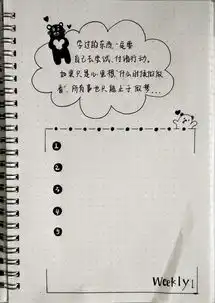 学过的东西一定要
自己去尝试,付诸行动。
如果只是心里想"什么时候做做
看",所有事也只能止于做梦...
1
2
3
4
5
Weekly 1